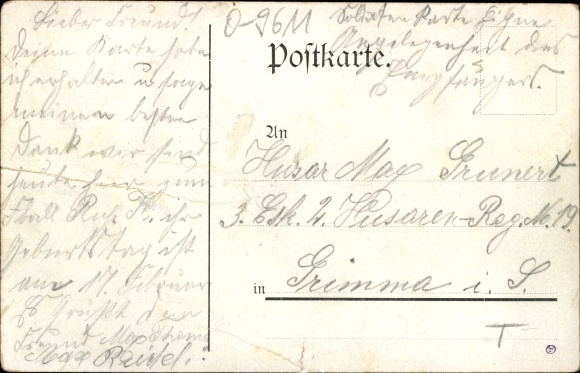 Lieber Freund!
Deine Karte habe
ich erhalten u. sage
meinen besten
Dank wir sind
heute hier zum
Ball ihr
Geburtstag ist
am 17. Februar
Es Grüßt dein
Freund Max
Max
O-9611
Soldaten Karte Eigne
Angelegenheit des
Empfängers.
Postkarte.
An
Husar Max Grunert
3. Esk. 2. Husaren-Reg. N. 19.
in Grimma i. S.
T